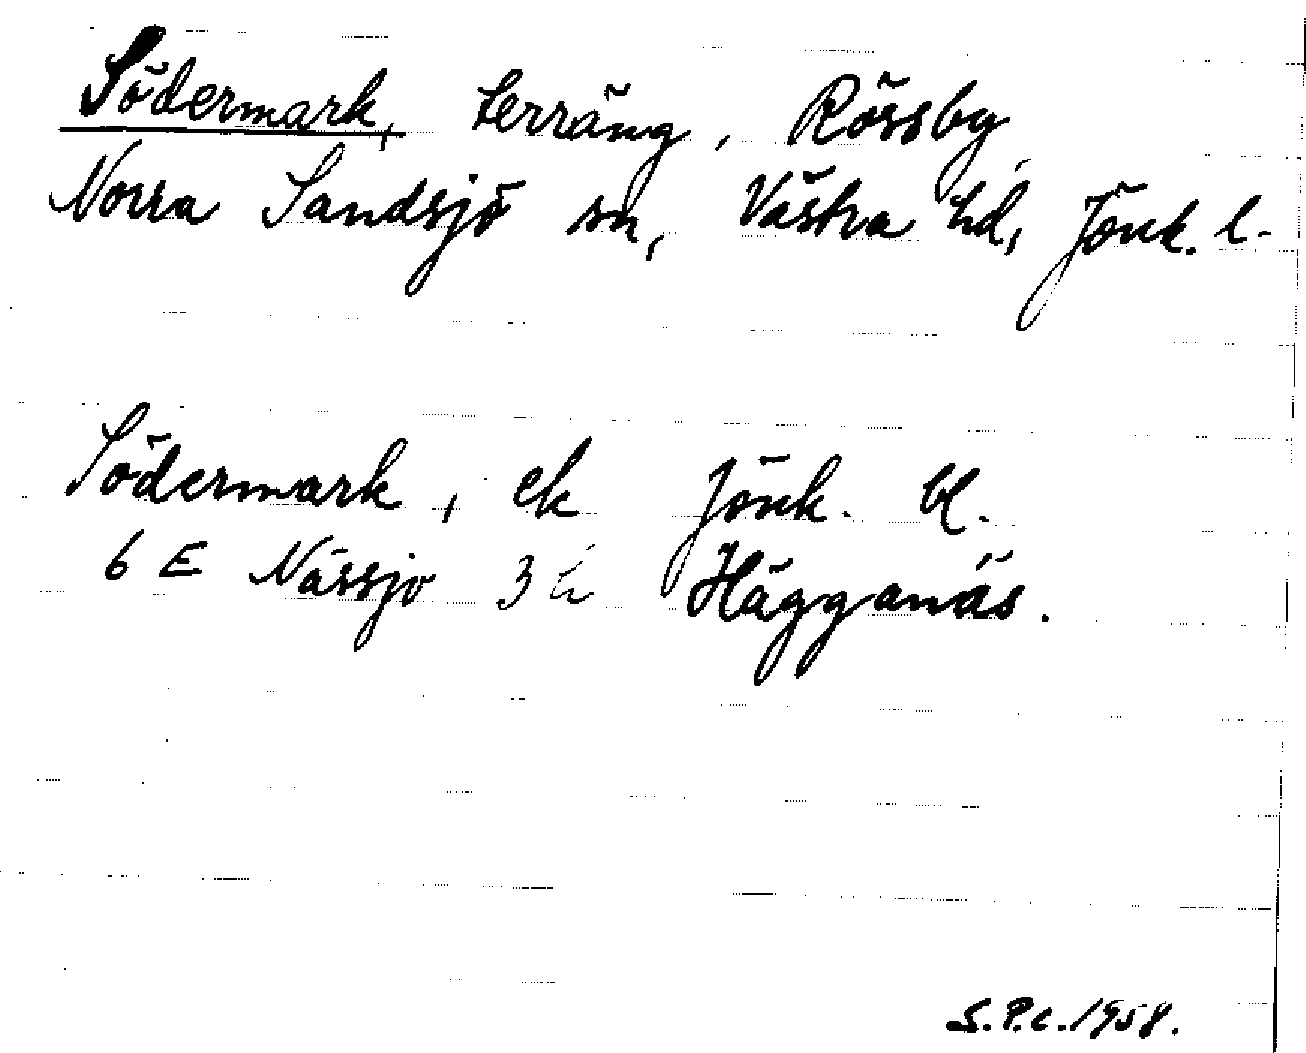 Södermark, terräng, Rössby,
Norra Sandsjö sn, Västra hd, Jönk. l.
Södermark, ek Jönk. bl.
6 E Nässjö 3 Hägganäs.
S.P.c. 1958.